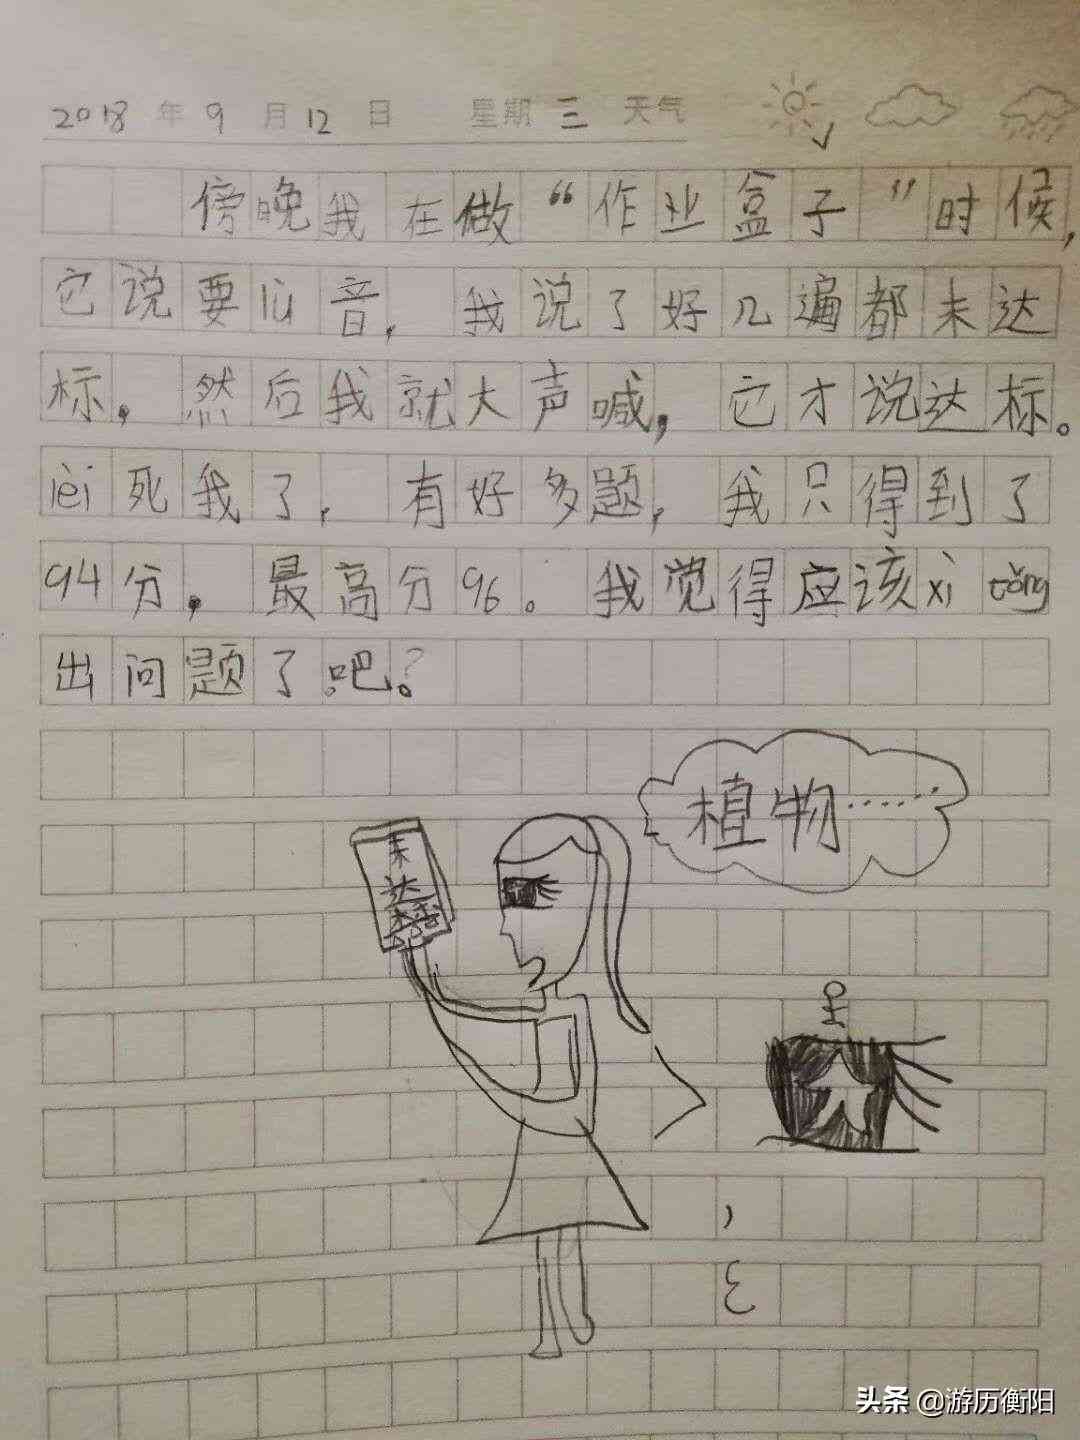 2018年9月12日 星期三 天气
傍晚我在做“作业盒子”时候,
它说要lù音,我说了好几遍都未达
标,然后我就大声喊,它才说达标。
lèi死我了,有好多题,我只得到了
94分。最高分96。我觉得应该xì tǒng
出问题了吧?
植物……
未
达
标
头条 @游历衡阳